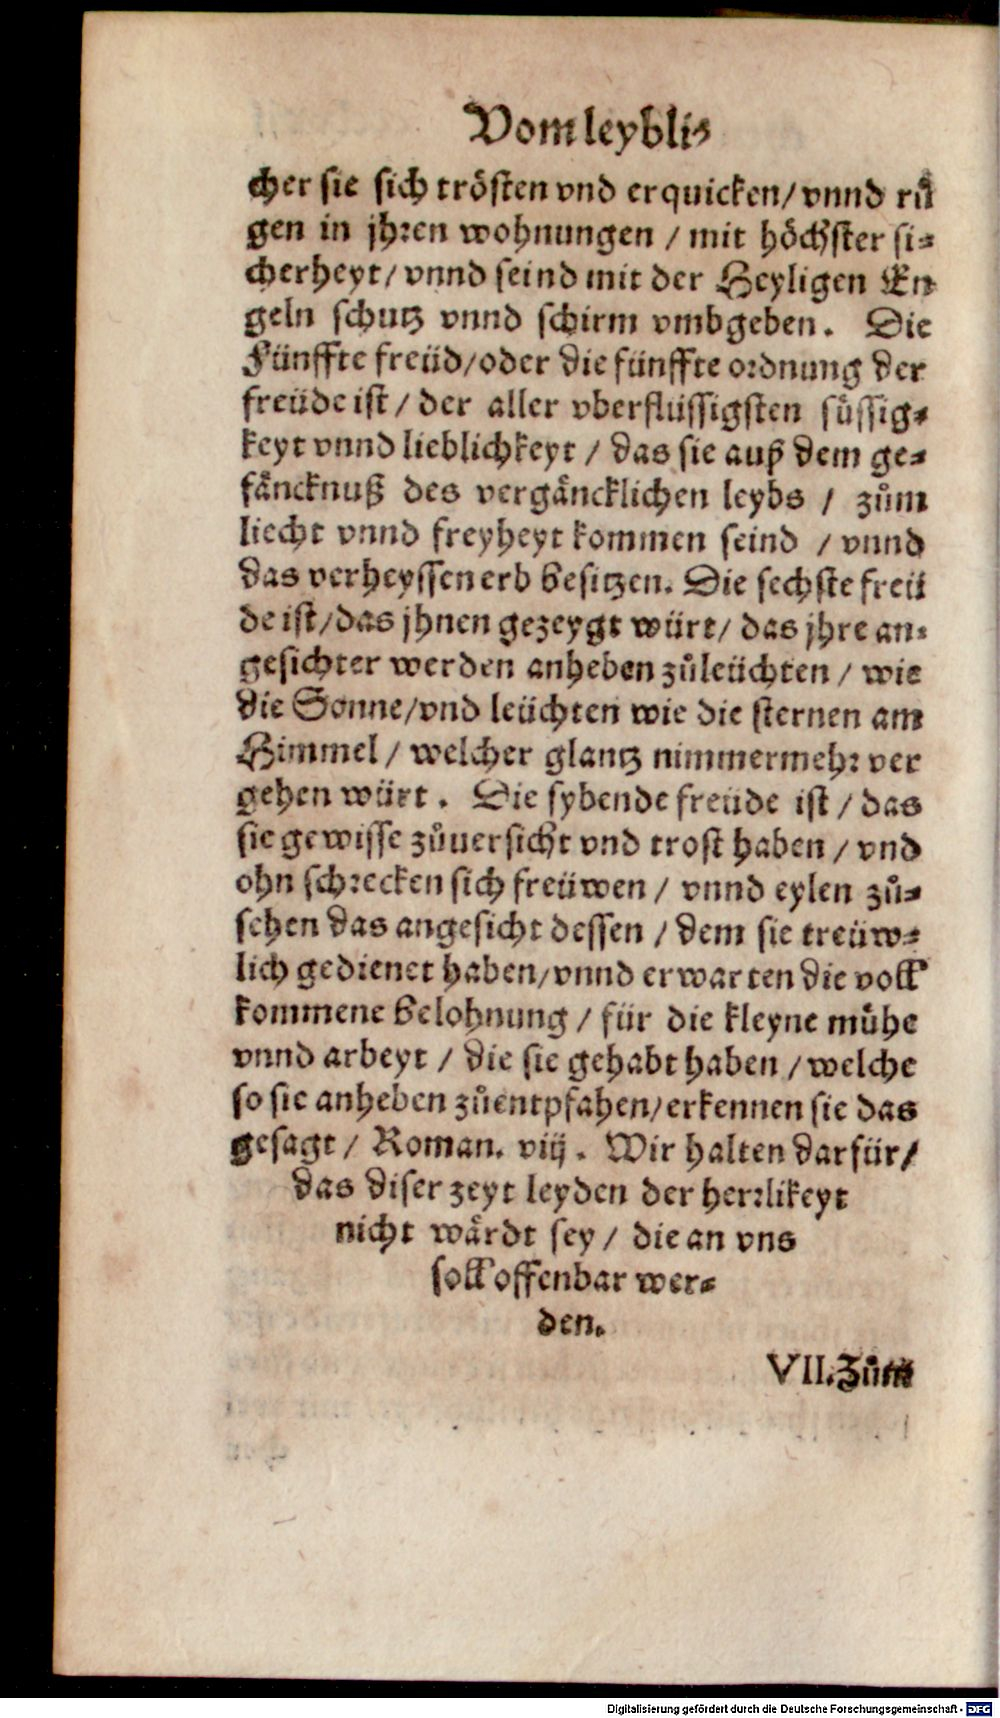 Vom leybli⸗
cher sie sich trösten vnd erquicken/ vnnd rů
gen in jhren wohnungen / mit höchster si⸗
cherheyt/ vnnd seind mit der Heyligen En
geln schutz vnnd schirm vmbgeben. Die
Fünffte freüd/oder die fünffte ordnung der
freüde ist / der aller vberflüssigsten süssig⸗
keyt vnnd lieblichkeyt / das sie auß dem ge⸗
fäncknuß des vergäncklichen leybs / zům
liecht vnnd freyheyt kommen seind / vnnd
das verheyssen erb besitzen. Die sechste freü
de ist/das jhnen gezeygt würt/ das jhre an⸗
gesichter werden anheben zůleüchten / wie
die Sonne/vnd leüchten wie die sternen am
Himmel / welcher glantz nimmermehr ver
gehen würt. Die sybende freüde ist / das
sie gewisse zůuersicht vnd trost haben / vnd
ohn schrecken sich freüwen / vnnd eylen zů⸗
sehen das angesicht dessen / dem sie treüw⸗
lich gedienet haben/vnnd erwarten die voll
kommene belohnung / für die kleyne mühe
vnnd arbeyt / die sie gehabt haben / welche
so sie anheben zůentpfahen/erkennen sie das
gesagt / Roman. viij. Wir halten darfür/
das diser zeyt leyden der herrlikeyt
nicht wärdt sey / die an vns
soll offenbar wer⸗
den.
VII. Zům
Digitalisierung gefördert durch die Deutsche Forschungsgemeinschaft - DFG